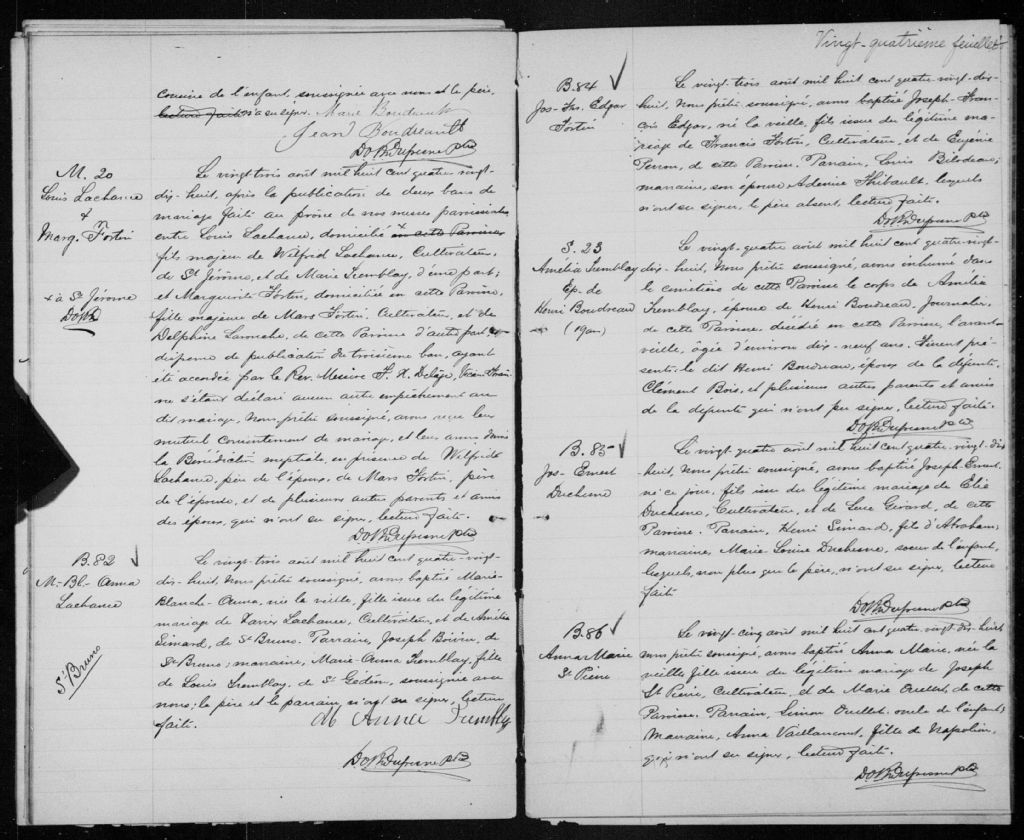 cousine de l'enfant, soussignée avec nous et le père,
lecture faite. a su signer. Marie Boudreault
Jean Boudreault
D.O.R. Dufresne Ptre
M. 20
Louis Lachance
&
Marg. Fortin
+ à St Jérôme
D.O.R.D.
Le vingt trois août mil huit cent quatre vingt-
dix-huit, après la publication de deux bans de
mariage faite au prône de nos messes paroissiales
entre Louis Lachance, domicilié + en cette Paroisse
fils majeur de Wilfrid Lachance, Cultivateur,
de St Jérôme, et de Marie Tremblay, d'une part;
et Marguerite Fortin, domiciliée en cette Paroisse,
fille majeure de Mars Fortin, Cultivateur, et de
Delphine Larouche, de cette Paroisse d'autre part,
dispense de publication du troisième ban, ayant
été accordée par le Rev. Messire F. X. Delâge, Vicaire
ne s'étant déclaré aucun autre empêchement au
dit mariage, Nous, prêtre soussigné, avons reçu leur
mutuel consentement de mariage, et leur avons donné
la Bénédiction nuptiale, en présence de Wilfrid
Lachance, père de l'époux, de Mars Fortin, père
de l'épouse, et de plusieurs autres parents et amis
des époux, qui n'ont su signer, lecture faite.
D.O.R. Dufresne Ptre
B. 82
M.-Bl.-Anna
Lachance
St Bruno
Le vingt-trois août mil huit cent quatre-vingt-
dix-huit, Nous, prêtre soussigné, avons baptisé Marie-
Blanche-Anna, née la veille, fille issue du légitime
mariage de Xavier Lachance, Cultivateur, et de Amélie
Simard, de St Bruno. Parrain, Joseph Boivin, de
St Bruno; marraine, Marie-Anna Tremblay, fille
de Louis Tremblay, de St Gédéon, soussignée avec
nous; le père et le parrain, n'ont su signer, lecture
faite.
M Annie Trembly
D.O.R. Dufresne Ptre
Vingt-quatrième feuillet
B. 84
Jos-Frs. Edgar
Fortin
Le vingt-trois août mil huit cent quatre-vingt-dix-
huit, Nous prêtre soussigné, avons baptisé Joseph-Fran-
çois Edgar, né la veille, fils issu du légitime ma-
riage de Francis Fortin, Cultivateur, et de Eugénie
Perron, de cette Paroisse. Parrain, Louis Bilodeau;
marraine, son épouse Adenise Thibault, lesquels
n'ont su signer, le père absent, lecture faite.
D.O.R. Dufresne Ptre
S. 23
Amélia Tremblay
Ep. de
Henri Boudreau
(19 an)
Le vingt-quatre août mil huit cent quatre-vingt-
dix-huit, Nous prêtre soussigné, avons inhumé dans
le cimetière de cette Paroisse le corps de Amélie
Tremblay, épouse de Henri Boudreau, Journalier,
de cette Paroisse, décédée en cette Paroisse, l'avant-
veille, âgée d'environ dix-neuf ans. Furent pré-
sents: le dit Henri Boudreau, époux de la défunte,
Clément Bois, et plusieurs autres parents et amis
de la défunte qui n'ont pu signer, lecture faite.
D.O.R. Dufresne Ptre
B. 85
Jos-Ernest
Duchesne
Le vingt quatre août mil huit cent quatre-vingt-dix
huit, Nous prêtre soussigné, avons baptisé Joseph-Ernest
né ce jour, fils issu du légitime mariage de Elie
Duchesne, Cultivateur, et de Luce Girard, de cette
Paroisse. Parrain, Henri Simard, fils d'Abraham;
marraine, Marie-Louise Duchesne, soeur de l'enfant,
lesquels, non plus que le père, n'ont su signer, lecture
faite
D.O.R. Dufresne Ptre
B. 86
Anna Marie
St Pierre
Le vingt-cinq août mil huit cent quatre-vingt-dix-huit
nous prêtre soussigné, avons baptisé Anna Marie, née la
veille fille issue du légitime mariage de Joseph
St Pierre, Cultivateur, et de Marie Ouellet, de cette
Paroisse. Parrain, Simon Ouellet, oncle de l'enfant;
Marraine, Anna Vaillancourt, fille de Napoléon,
qui n'ont su signer, lecture faite.
D.O.R. Dufresne Ptre